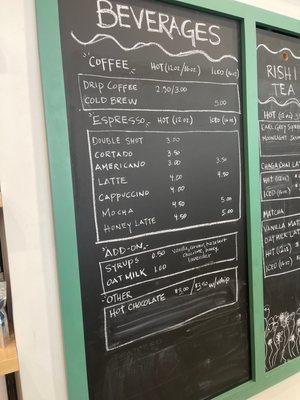 BEVERAGES
COFFEE HOT (12 OZ/16 OZ) ICED (16 OZ)
DRIP COFFEE 2.50/3.00
COLD BREW 5.00
ESPRESSO HOT (12 OZ) ICED (16 OZ)
DOUBLE SHOT 3.00
CORTADO 3.50
AMERICANO 3.00 3.50
LATTE 4.00 4.50
CAPPUCCINO 4.00
MOCHA 4.50 5.00
HONEY LATTE 4.50 5.00
ADD-ON
SYRUPS 0.50 Vanilla, caramel, hazelnut
chocolate, honey,
lavender
OAT MILK 1.00
OTHER
HOT CHOCOLATE $3.00/$3.50 w/whip
RISHI
TEA
HOT (12 OZ)
EARL GREY
MOONLIGHT
CHAGA CHAI LA
HOT (12 OZ)
ICED (16 OZ)
MATCHA
VANILLA
OAT MILK
HOT (12 OZ)
ICED (16 OZ)